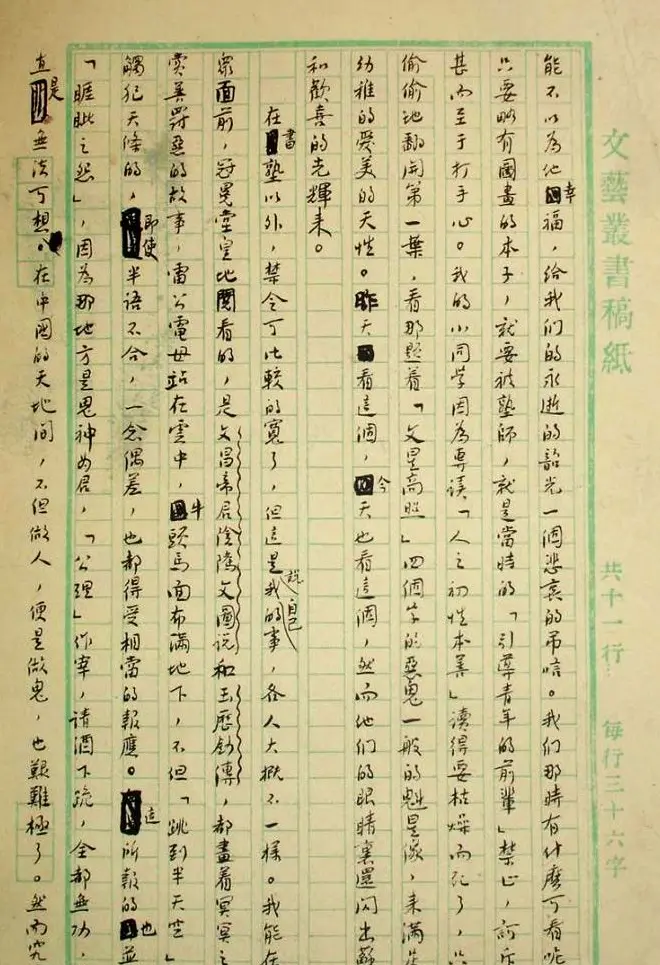 文藝叢書稿紙
共十一行
每行三十六字
能不以為他幸福，給我们的永逝的韶光一個悲哀的吊唁。我们那時有什麽可看呢
只要略有圖畫的本子，就要被塾師，就是當時的「引導青年的前輩」禁止，訶斥
甚而至于打手心。我的小同学因為専讀「人之初性本善」讀得要枯燥而死了，只
偷偷地翻開第一葉，看那題着「文星高照」四個字的惡鬼一般的魁星像，来滿足
幼稚的爱美的天性。昨天看這個，今天也看這個，然而他们的眼睛裏還闪出蘇
和歡喜的光輝来。
在書塾以外，禁令可比較的寬了，但這是說自己的事，各人大概不一樣。我能在
衆面前，冠冕堂皇地閱看的，是文昌帝君陰隲文圖说和玉歷鈔傳，都畫着冥冥之
賞善罸惡的故事，雷公電母站在雲中，牛頭馬面布滿地下，不但「跳到半天空」
觸犯天條的，即使半语不合，一念偶差，也都得受相當的報應。這所報的也並
「睚眦之怨」，因為那地方是鬼神为君，「公理」作宰，請酒下跪，全都無功，
直是無法可想。在中國的天地间，不但做人，便是做鬼，也艱難極了。然而究